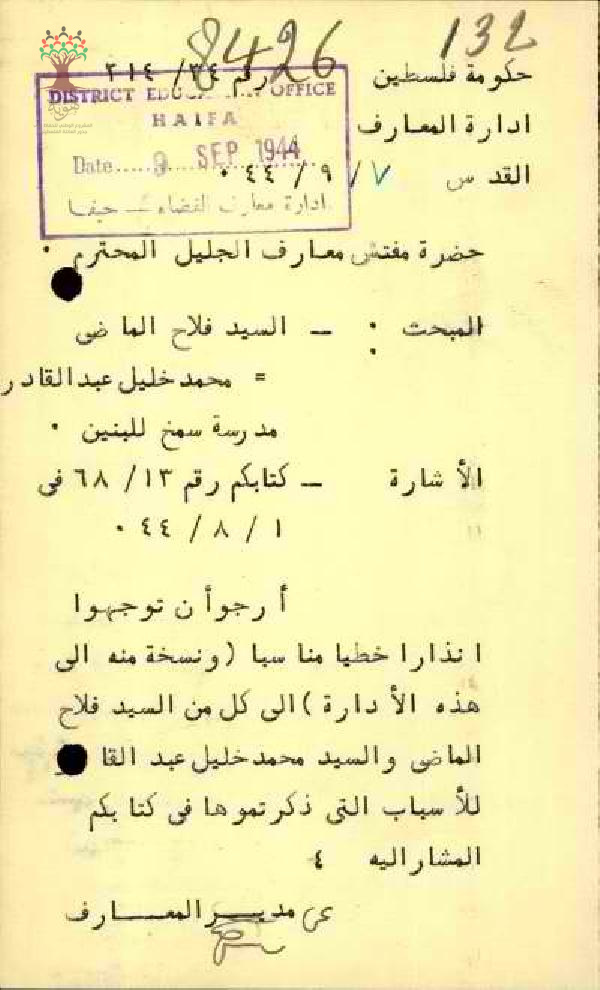 8426
132
حكومة فلسطين
رقم ٣٤/ ٢١٤
DISTRICT EDUCATION OFFICE
HAIFA
Date..... 9 SEP 1944
ادارة معارف القضاء — حيفا
ادارة المعارف
القدس ٧/ ٩ / ٤٤ ٠
حضرة مفتش معارف الجليل المحترم ٠
المبحث : — السيد فلاح الماضى
= محمد خليل عبد القادر
مدرسة سمخ للبنين ٠
الأشارة — كتابكم رقم ١٣/ ٦٨ فى
١ / ٨ / ٤٤ ٠
أرجو أن توجهوا
انذارا خطيا مناسبا (ونسخة منه الى
هذه الأدارة) الى كل من السيد فلاح
الماضى والسيد محمد خليل عبد القا
للأسباب التى ذكرتموها فى كتابكم
المشار اليه ٤
عن مديـــر المعـــارف